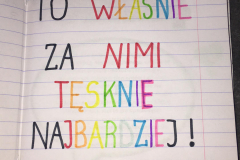 TO WŁAŚNIE
ZA NIMI
TĘSKNIE
NAJBARDZIEJ!